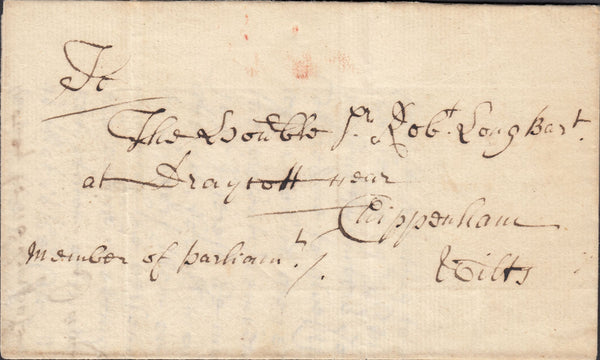 To
The Honble Sr. Robt. Long Bart.
at Draycott near
Chippenham
Member of parliamt.
Wilts